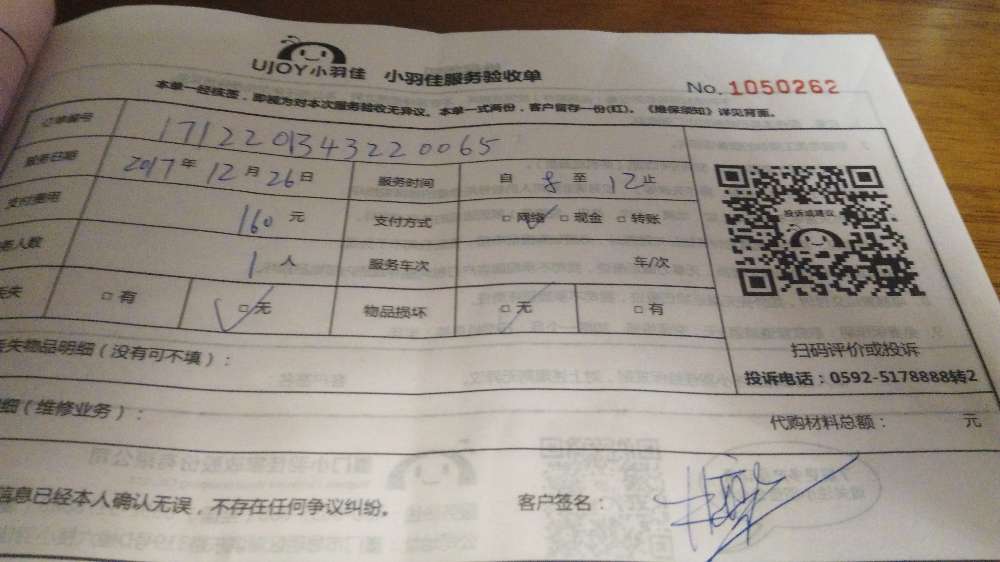 UJOY小羽佳 小羽佳服务验收单
No. 1050262
本单一经核签，即视为对本次服务验收无异议。本单一式两份，客户留存一份(红)。《维保须知》详见背面。
订单编号 1712201343220065
服务日期 2017年12月26日 服务时间 自8至12止
支付费用 160元 支付方式 □网络 □现金 □转账
人数 1人 服务车次 年/次
失 □有 □无 物品损坏 □无 □有
投诉或建议
扫码评价或投诉
投诉电话：0592-5178888转2
失物品明细（没有可不填）：
细（维修业务）： 代购材料总额： 元
信息已经本人确认无误，不存在任何争议纠纷。 客户签名：